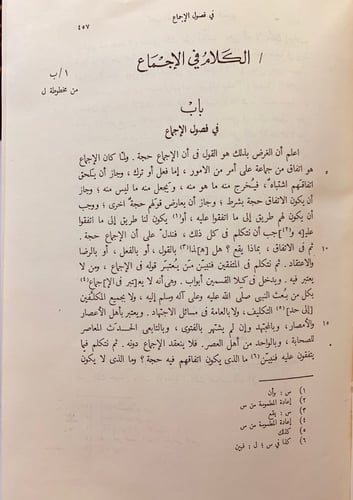 في فصول الإجماع
٤٥٧
/ الكلام في الإجماع
١/ب
من مخطوطة ل
باب
في فصول الإجماع
اعلم أن الغرض بذلك هو القول في أن الإجماع حجة . ولمّا كان الإجماع
هو اتفاق من جماعة على أمر من الامور ، إما فعل أو ترك ، وجاز أن يلحق
اتفاقهم اشتباه ، فيُخرج منه ما هو منه ، ويجعل منه ما ليس منه ؛ وجاز
أن يكون الاتفاق حجة بشرط ؛ وجاز أن يعارض قولهم حجة اخرى ؛ ووجب
أن يكون لهم طريق إلى ما اتفقوا عليه ، أو(١) يكون لنا طريق إلى ما اتفقوا
علي[ه و(٢)]جب أن نتكلم في كل ذلك ، فندل على أن الإجماع حجة .
١٠ ثم في الاتفاق ، بماذا يقع ؟ هل [ه]ذا(٣) بالقول ، أو بالفعل ، أو بالرضا
والاعتقاد . ثم نتكلم في المتفقين فنبيّن مَن يُعتبر قوله في الإجماع ، ومن لا
يعتبر فيه . ويدخل في كيلا القسمين أبواب . وهي أنه لا يع[تبر في الإ]جماع(٤)
بكل من بعث النبى صلى الله عليه وعلى آله وسلم إليه ، ولا بجميع المكلَّفين
[إلى حد(٥)] التكليف ، ولا بالعامة في مسائل الاجتهاد . ويعتبر بأهل الأعصار
١٥ والأمصار ، وبالمجتهد وإن لم يشتهر بالفتوى ، وبالتابعى الحـَدَث المعاصر
للصحابة ، وبالواحد من أهل العصر . فلا ينعقد الإجماع دونه . ثم نتكلم فيما
يتفقون عليه فنبيّن(٦) ما الذى يكون اتفاقهم فيه حجة ؟ وما الذى لا يكون
١) س : وأن
٢) إعادة المطموسة من س
٣) س : يقع
٤) إعادة المطموسة من س
٥) كذلك
٦) كذا في س ؛ ل : فبين